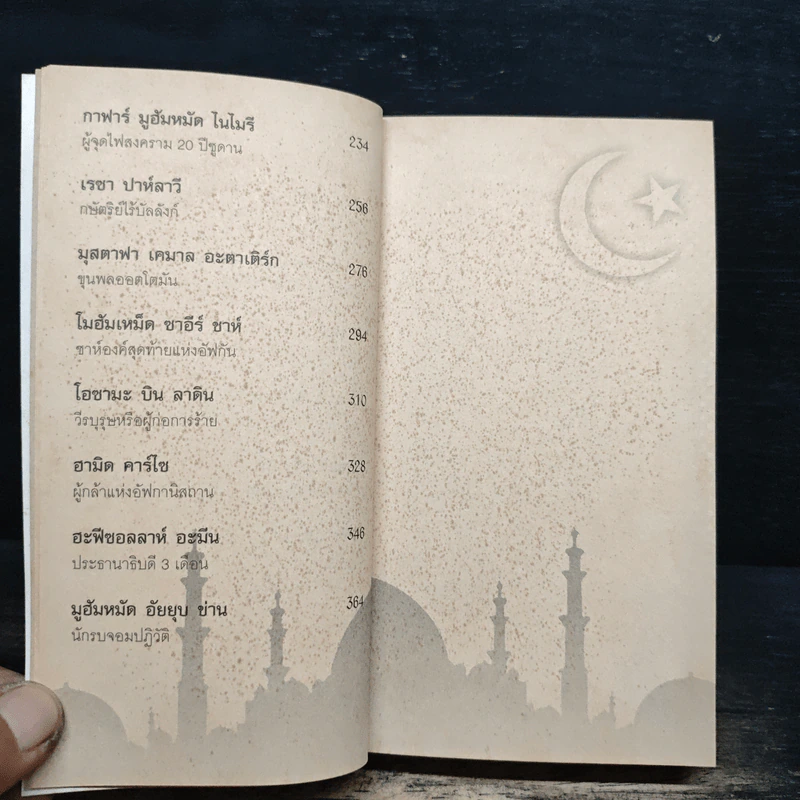 กาฟาร์ มูฮัมหมัด ไนไมรี
ผู้จุดไฟสงคราม 20 ปีซูดาน 234
เรซา ปาห์ลาวี
กษัตริย์ไร้บัลลังก์ 256
มุสตาฟา เคมาล อะตาเติร์ก
ขุนพลออตโตมัน 276
โมฮัมเหม็ด ซาอีร์ ชาห์
ชาห์องค์สุดท้ายแห่งอัฟกัน 294
โอซามะ บิน ลาดิน
วีรบุรุษหรือผู้ก่อการร้าย 310
ฮามิด คาร์ไซ
ผู้กล้าแห่งอัฟกานิสถาน 328
ฮะฟีซอลลาห์ อะมีน
ประธานาธิบดี 3 เดือน 346
มูฮัมหมัด อัยยุบ ข่าน
นักรบจอมปฏิวัติ 364